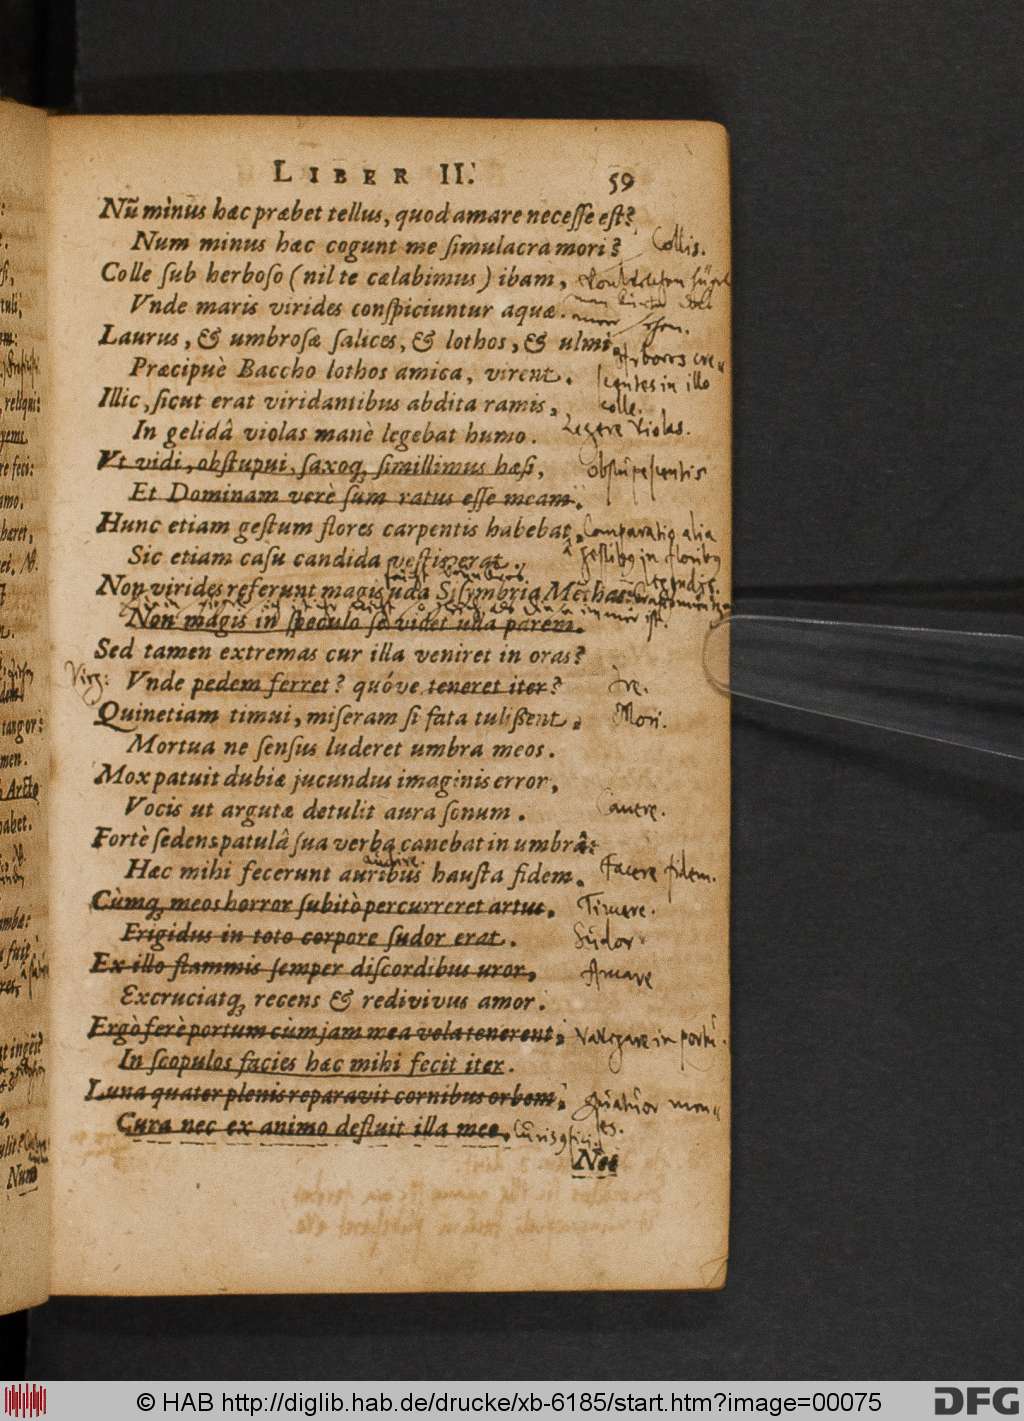 LIBER II.
59
Nū minus hæc præbet tellus, quod amare necesse est?
Num minus hæc cogunt me simulacra mori?
Collis.
Colle sub herboso (nil te cælabimus) ibam,
Vnde maris virides conspiciuntur aquæ.
Laurus, & umbrosæ salices, & lothos, & ulmi,
Arbores cre-
Præcipuè Baccho lothos amica, virent.
scentes in illo
Illic, sicut erat viridantibus abdita ramis,
colle.
In gelidâ violas manè legebat humo.
Legere violas.
Vt vidi, obstupui, saxoq; simillimus hæsi,
obstupescentis
Et Dominam verè sum ratus esse meam.
Hunc etiam gestum flores carpentis habebat,
Comparatio alia
Sic etiam casu candida vestis erat.
â gestibus in floribus
Non virides referunt magis uda Sisymbria Menthas:
Non magis in speculo se videt ulla parem.
Sed tamen extremas cur illa veniret in oras?
Virg:
Vnde pedem ferret? quóve teneret iter?
Ire.
Quinetiam timui, miseram si fata tulissent,
Mori.
Mortua ne sensus luderet umbra meos.
Mox patuit dubiæ jucundus imaginis error,
Vocis ut argutæ detulit aura sonum.
Canere.
Fortè sedens patulâ sua verba canebat in umbrâ:
audire.
Hæc mihi fecerunt auribus hausta fidem.
Facere fidem.
Cùmq; meos horror subitò percurreret artus,
Timere.
Frigidus in toto corpore sudor erat.
Sudor
Ex illo flammis semper discordibus uror,
Amare
Excruciatq; recens & redivivus amor.
Ergò ferè portum cùm jam mea vela tenerent,
Navigare in portū.
In scopulos facies hæc mihi fecit iter.
Luna quater plenis reparavit cornibus orbem,
quatuor men-
Cura nec ex animo defluit illa meo.
ses.
Nec
© HAB http://diglib.hab.de/drucke/xb-6185/start.htm?image=00075
DFG